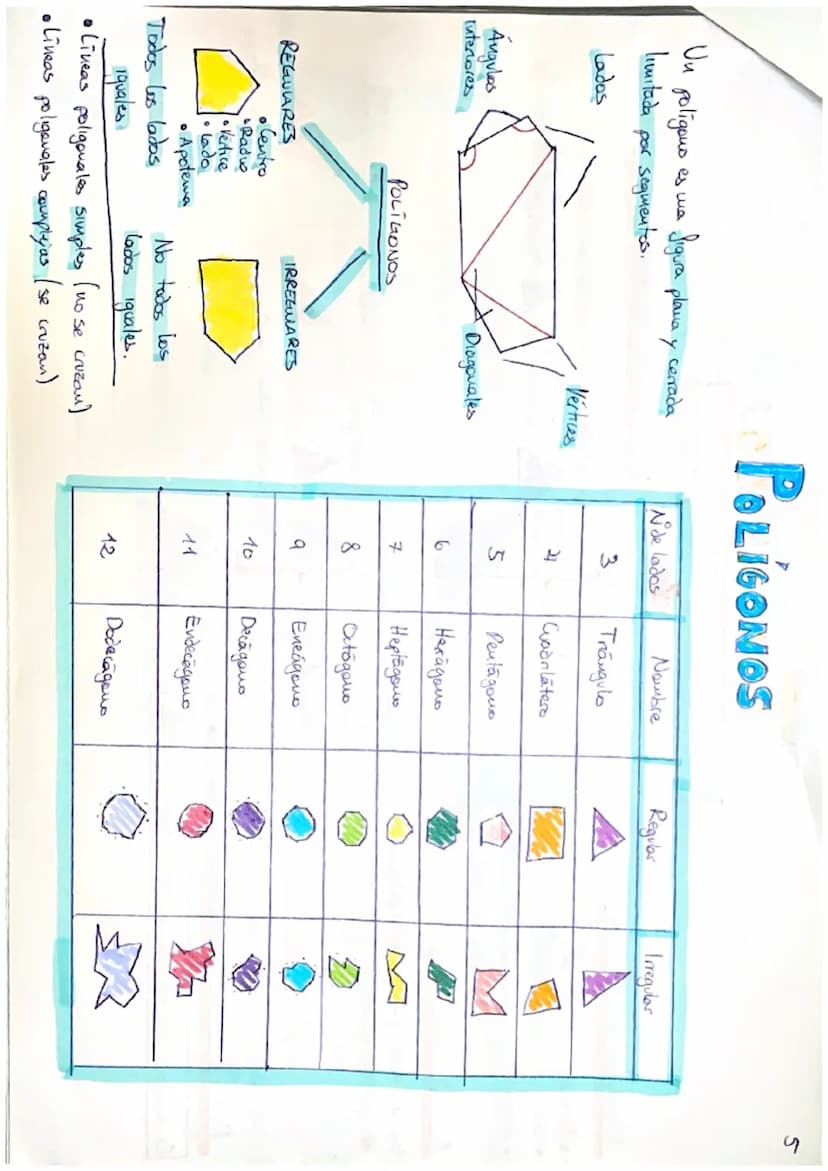 POLÍGONOS
Un polígono es una figura plana y cerrada
limitada por segmentos.
Lados
Vértices
Ángulos
interiores
Diagonales
POLÍGONOS
REGULARES
• Centro
• Radio
• Vértice
• Lado
• Apotema
Todos los lados
iguales
IRREGULARES
No todos los
lados iguales.
• Líneas poligonales simples (no se cruzan)
• Líneas poligonales complejas (se cruzan)
Nº de lados Nombre Regular Irregular
3 Triángulo
4 Cuadrilátero
5 Pentágono
6 Hexágono
7 Heptágono
8 Octógono
9 Eneágono
10 Decágono
11 Endecágono
12 Dodecágono
5